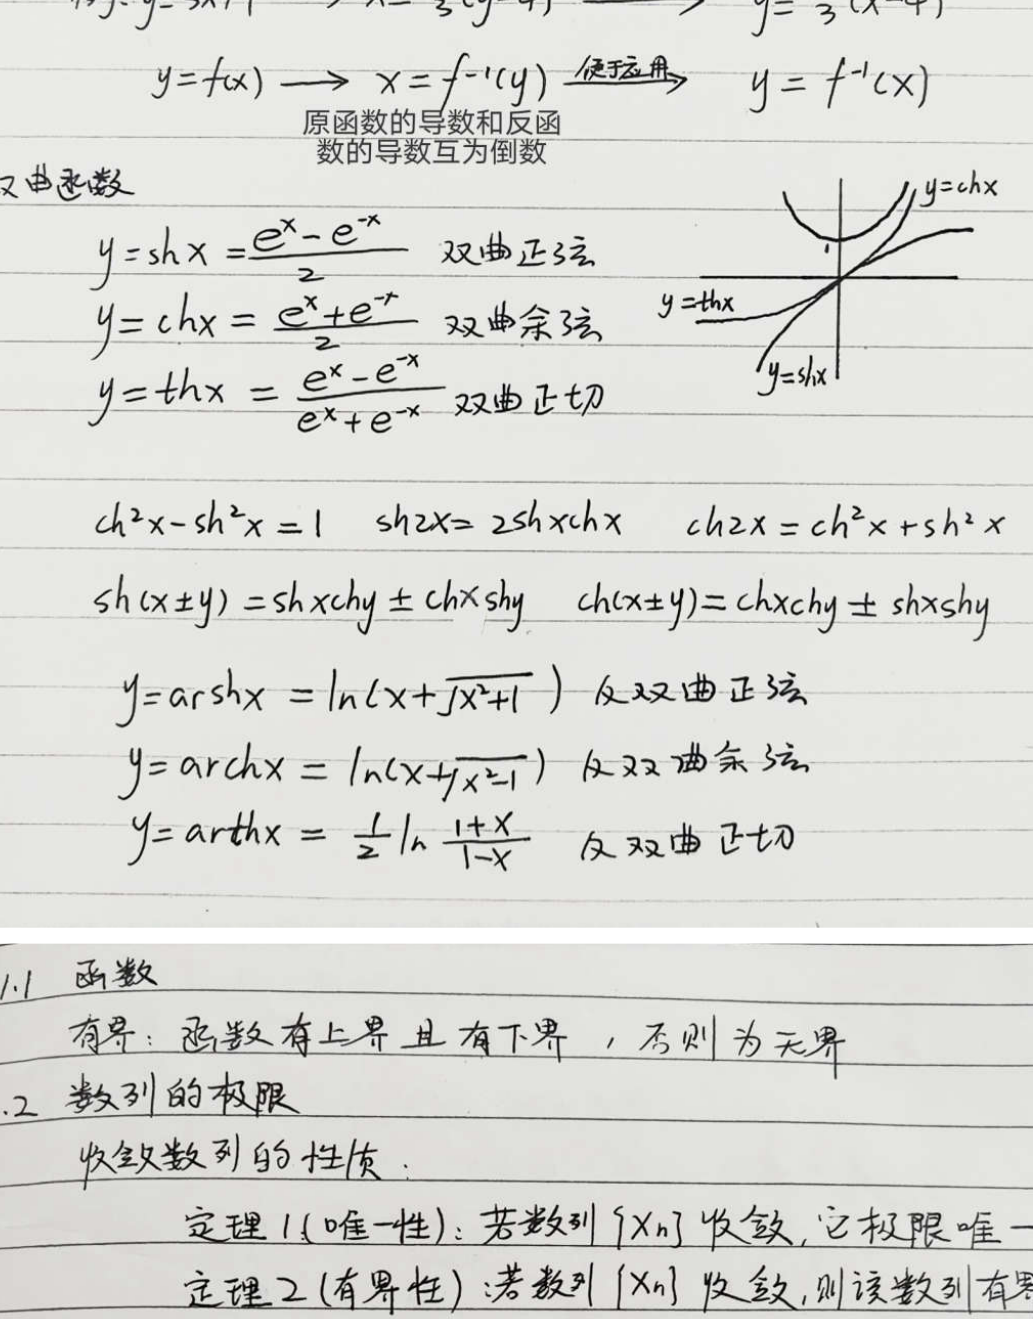 y=f(x) ⟶ x=f⁻¹(y) 便于应用⟶ y=f⁻¹(x)
原函数的导数和反函
数的导数互为倒数
双曲函数
y=chx
1
y=thx
y=shx
y=shx=(eˣ-e⁻ˣ)/2 双曲正弦
y=chx=(eˣ+e⁻ˣ)/2 双曲余弦
y=thx=(eˣ-e⁻ˣ)/(eˣ+e⁻ˣ) 双曲正切
ch²x-sh²x=1 sh2x=2shxchx ch2x=ch²x+sh²x
sh(x±y)=shxchy±chxshy ch(x±y)=chxchy±shxshy
y=arshx=ln(x+√(x²+1)) 反双曲正弦
y=archx=ln(x+√(x²-1)) 反双曲余弦
y=arthx=1/2 ln (1+x)/(1-x) 反双曲正切
1.1 函数
有界：函数有上界且有下界，否则为无界
.2 数列的极限
收敛数列的性质.
定理1(唯一性):若数列{Xn}收敛,它极限唯一
定理2(有界性):若数列{Xn}收敛,则该数列有界